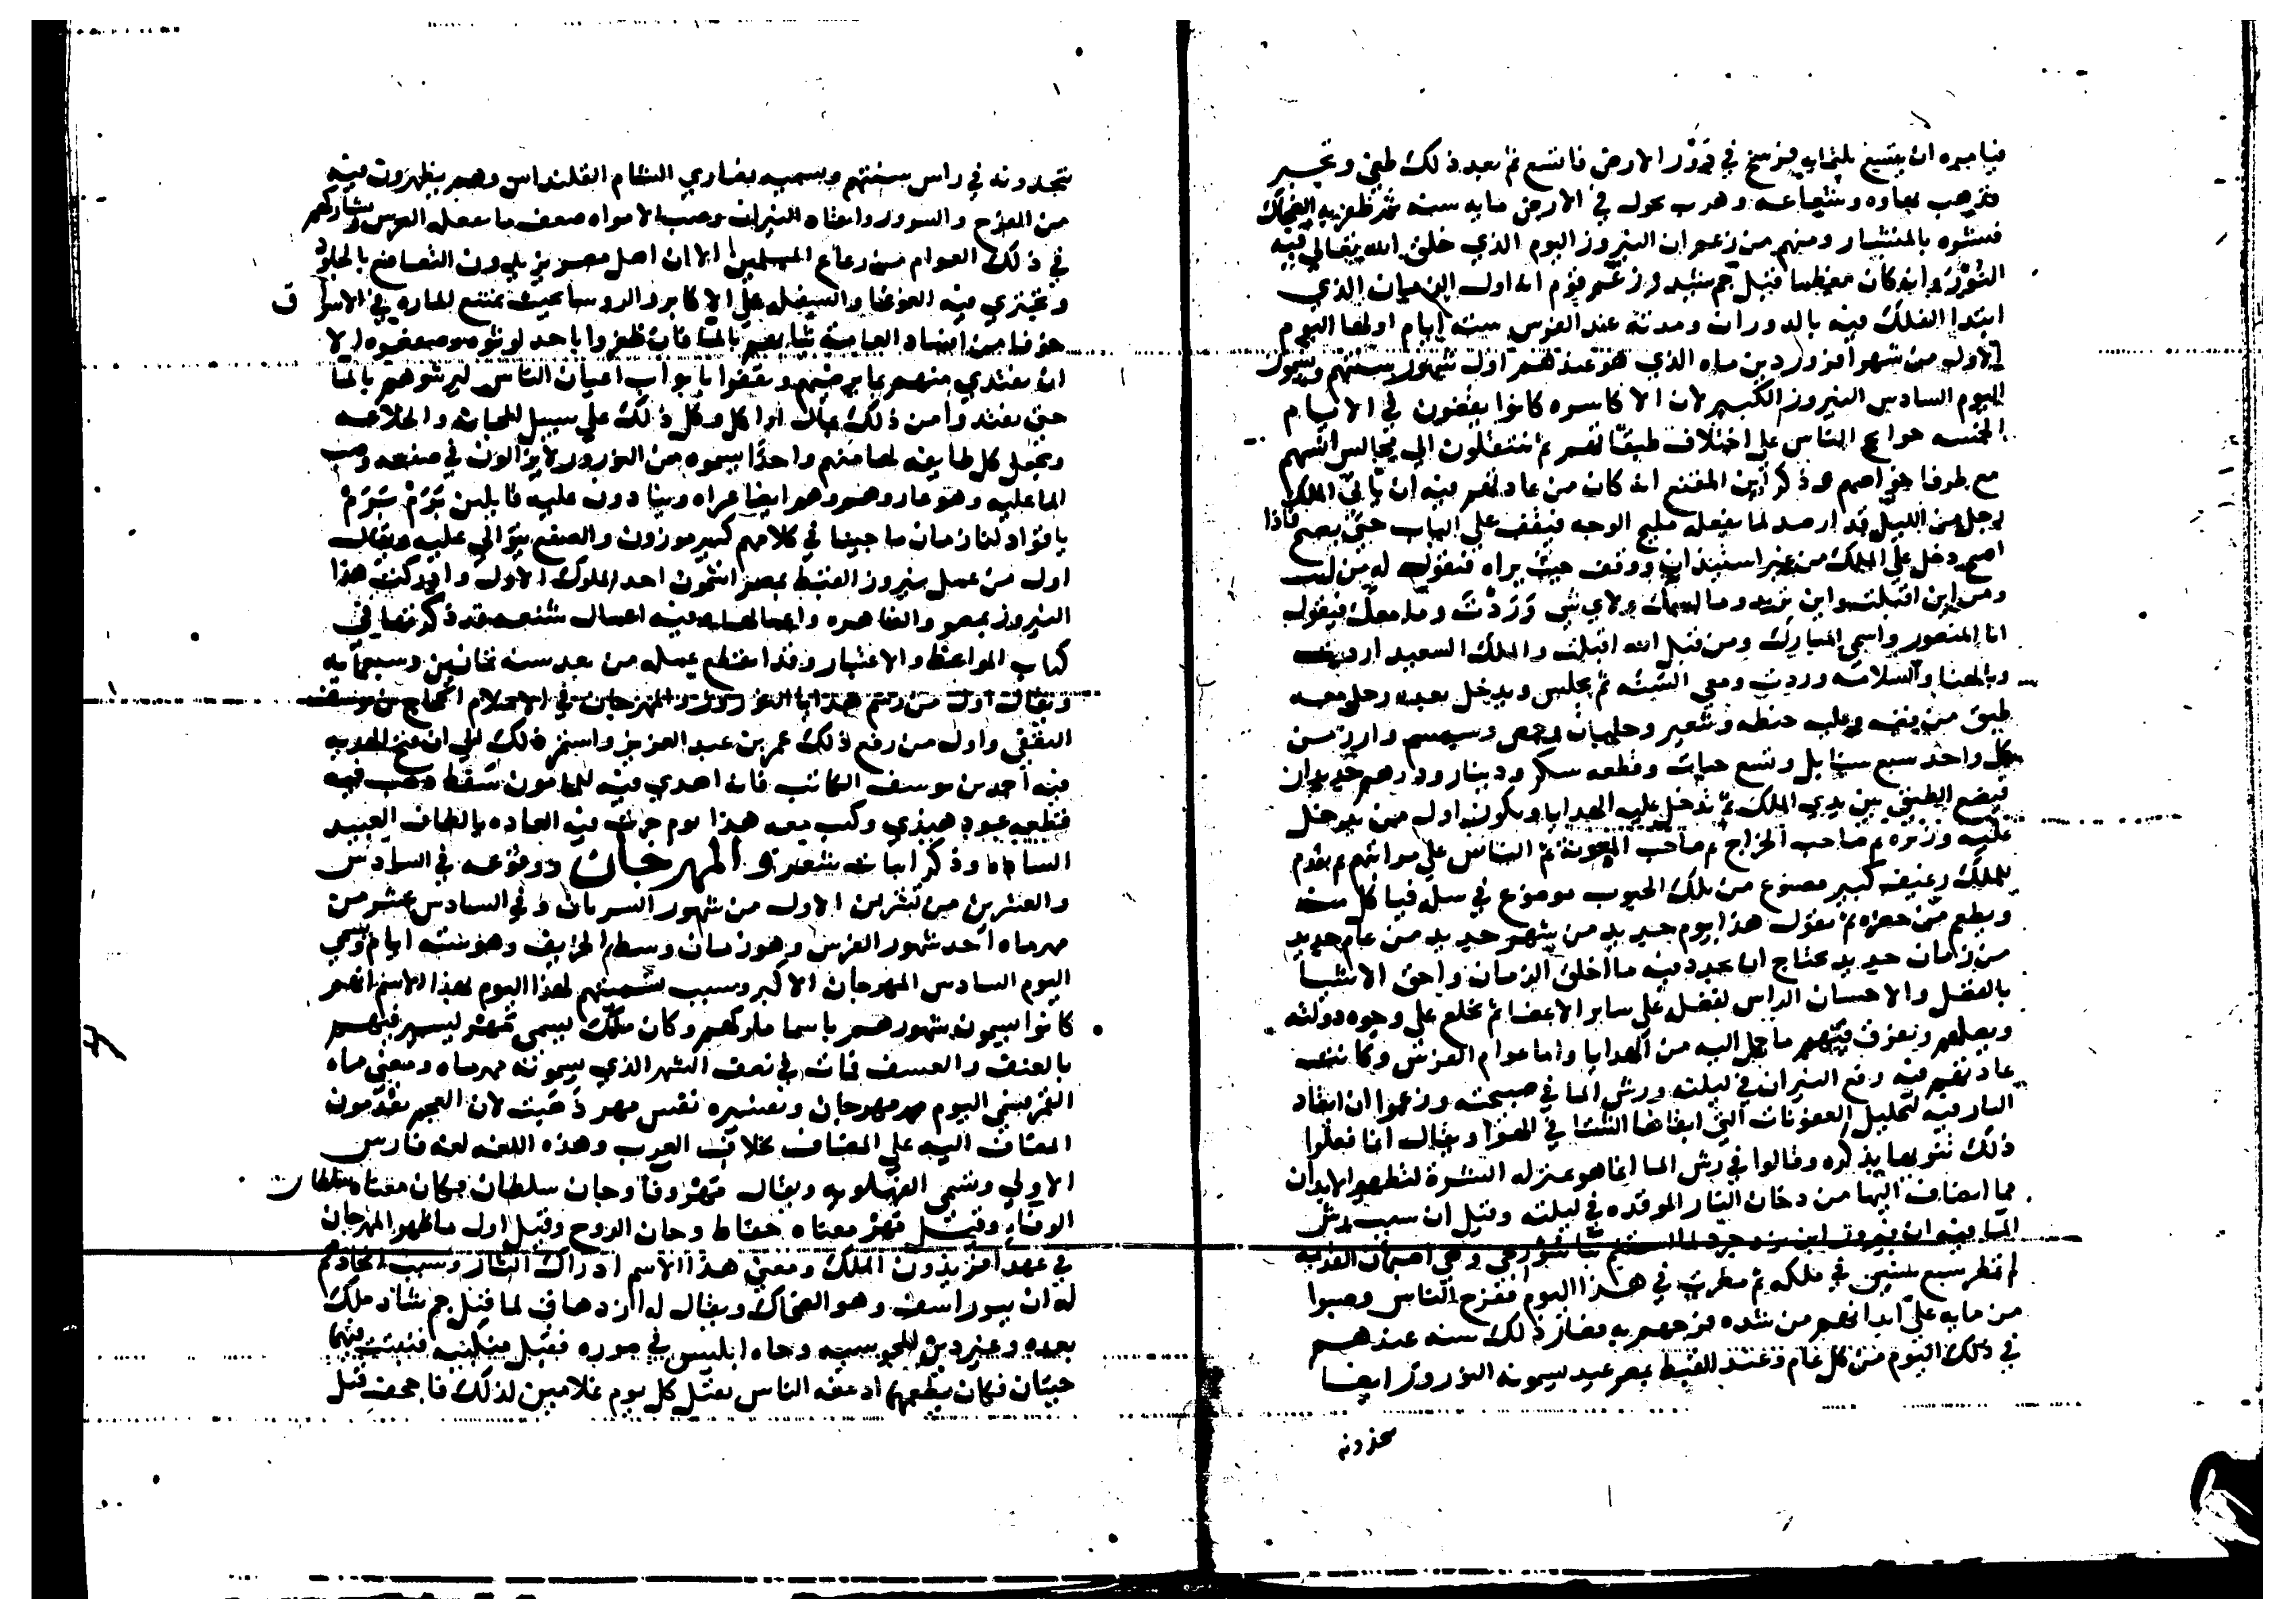 فيامره ان يتسع بلثمايه فرسخ في دور الارض فاتسع ثم بعد ذلك طغى وتجبر
فذهب بهاوه وشعاعه وهرب يحول في الارض مايه سنه ثم ظفر به الضحاك
فنشره بالمنشار ومنهم من زعم ان النيروز اليوم الذي خلق الله تعالى فيه
النور وانه كان معظما قبل جم شيد وزعم قوم انه اول الزمان الذي
ابتدا الفلك فيه بالدوران ومدته عند الفرس سته ايام اولها اليوم
الاول من شهر افروردين ماه الذي هو عندهم اول شهور سنتهم ويسمون
اليوم السادس النيروز الكبير لان الاكاسره كانوا يقضون في الايام
الخمسه حوايج الناس على اختلاف طبقاتهم ثم ينتقلون الى مجالس انسهم
مع طرفا خواصهم وذكر ابن المقفع انه كان من عادتهم فيه ان ياتي الملك
رجل من الليل قد ارصد لما يفعله مليح الوجه فيقف على الباب حتى يصبح فاذا
اصبح دخل على الملك من غير استيذان ووقف حيث يراه فيقول له من انت
ومن اين اقبلت واين تريد وما اسمك ولاي شي وردت وما معك فيقول
انا المنصور واسمي المبارك ومن قبل الله اقبلت والملك السعيد اردت
وبالهنا والسلامه وردت ومعي السنه ثم يجلس ويدخل بعده رجل معه
طبق من فضه وعليه حنطه وشعير وجلبان وحمص وسمسم وارز من
كل واحد سبع سنابل وتسع حبات وقطعه سكر ودينار ودرهم جديدان
فيضع الطبق بين يدي الملك ثم تدخل عليه الهدايا ويكون اول من يدخل
عليه وزيره ثم صاحب الخراج ثم صاحب المعونة ثم الناس على مراتبهم ثم يقدم
للملك رغيف كبير مصنوع من تلك الحبوب موضوع في سله فياكل منه
ويطعم من حضره ثم يقول هذا يوم جديد من شهر جديد من عام جديد
من زمان جديد يحتاج ان يجدد فيه ما اخلق الزمان واحق الاشيا
بالفضل والاحسان الراس لفضله على ساير الاعضا ثم يخلع على وجوه دولته
ويصلهم ويفرق فيهم ما حمل اليه من الهدايا واما عوام الفرس فكانت
عادتهم فيه رفع النيران في ليلته ورش الما في صبيحته وزعموا ان ايقاد
النار فيه لتحليل العفونات التي ابقاها الشتا في الهوا ويقال انما فعلوا
ذلك تنويها بذكره وقالوا في رش الما انما هو بمنزله النشرة لتطهير الابدان
مما انضاف اليها من دخان النار الموقده في ليلته وقيل ان سبب رش
الما فيه ان فيروز ابن يزدجرد لما استتم بنا سور جي وهي اصبهان القديمه
لم تمطر سبع سنين في ملكه ثم مطرت في هذا اليوم ففرح الناس وصبوا
من مايه على ابدانهم من شده فرحهم به فصار ذلك سنه عندهم
في ذلك اليوم من كل عام وعند القبط بمصر عيد يسمونه النوروز ايضا
يتخذونه
يتخذونه في راس سنتهم ويسميه نصاري الشام القلنداس وهم يظهرون فيه
من الفرح والسرور وايقاد النيران وصب الامواه ضعف ما يفعله الفرس ويشاركهم
في ذلك العوام من رعاع المسلمين الا ان اهل مصر يزيدون التصافع بالجلود
وتجتري فيه الغوغا والسفله على الاكابر والروسا بحيث يمتنع الماره في الاسواق
خوفا من افساد العامه ثيابهم بالما فان ظفروا باحد لوثوه وصفعوه الا
ان يفتدي منهم بما يرضيهم ويقفوا بابواب اعيان الناس ليرشوهم بالما
حتى يفتدوا من ذلك بمال او اكل وكل ذلك على سبيل المجانه والخلاعه
ويجعل كل طايفه لها منهم واحدا يسموه من النوروز لا يزالون في صفعه وصب
الما عليه وهو عار وهم وهو ايضا عراه وينادون عليه قايلين
اول من عمل نيروز القبط بمصر اشمون احد الملوك الاول وادركت هذا
النيروز بمصر والقاهره واعمالها فيه اعمال شنعه قد ذكرتها في
كتاب المواعظ والاعتبار وقد انقطع عمله من بعد سنه ثمانين وسبعمايه
ويقال اول من رسم هدايا النوروز والمهرجان في الاسلام الحجاج بن يوسف
الثقفي واول من رفع ذلك عمر بن عبد العزيز واستمر ذلك الى ان فتح الهديه
فيه احمد بن يوسف الكاتب فانه اهدي فيه للمامون سفط ذهب فيه
قطعه عود هندي وكتب معه هذا يوم جرت فيه العاده بالطاف العبيد
الساده وذكر ابيات شعر والمهرجان ووقوعه في السادس
والعشرين من تشرين الاول من شهور السريان وفي السادس عشر من
مهرماه احد شهور الفرس وهو زمان وسط الخريف وهو سته ايام ويسمى
اليوم السادس المهرجان الاكبر وسبب تسميتهم لهذا اليوم بهذا الاسم انهم
كانوا يسمون شهورهم باسما ملوكهم وكان ملك يسمى مهر يسير فيهم
بالعنف والعسف فمات في نصف الشهر الذي يسمونه مهرماه ومعنى ماه
القمر فسمي اليوم مهرجان وتفسيره نفس مهر ذهبت لان العجم يقدمون
المضاف اليه على المضاف بخلاف العرب وهذه اللغه لغه فارس
الاولي وتسمى الفهلويه ويقال مهر وفا وجان سلطان فكان معناه سلطان
الوفا وقيل مهر معناه حفاظ وجان الروح وقيل اول ما ظهر المهرجان
في عهد افريذون الملك ومعنى هذا الاسم ادراك الثار وسبب اتخاذهم
له ان بيوراسف وهو الضحاك ويقال له ازدهاق لما قتل جم شاد ملك
بعده وغير دين المجوسيه وجاه ابليس في صوره فقبل منكبيه فنبتت فيهما
حيتان فكان يطعمهما ادمغه الناس يقتل كل يوم غلامين لذلك فاجحف قتل